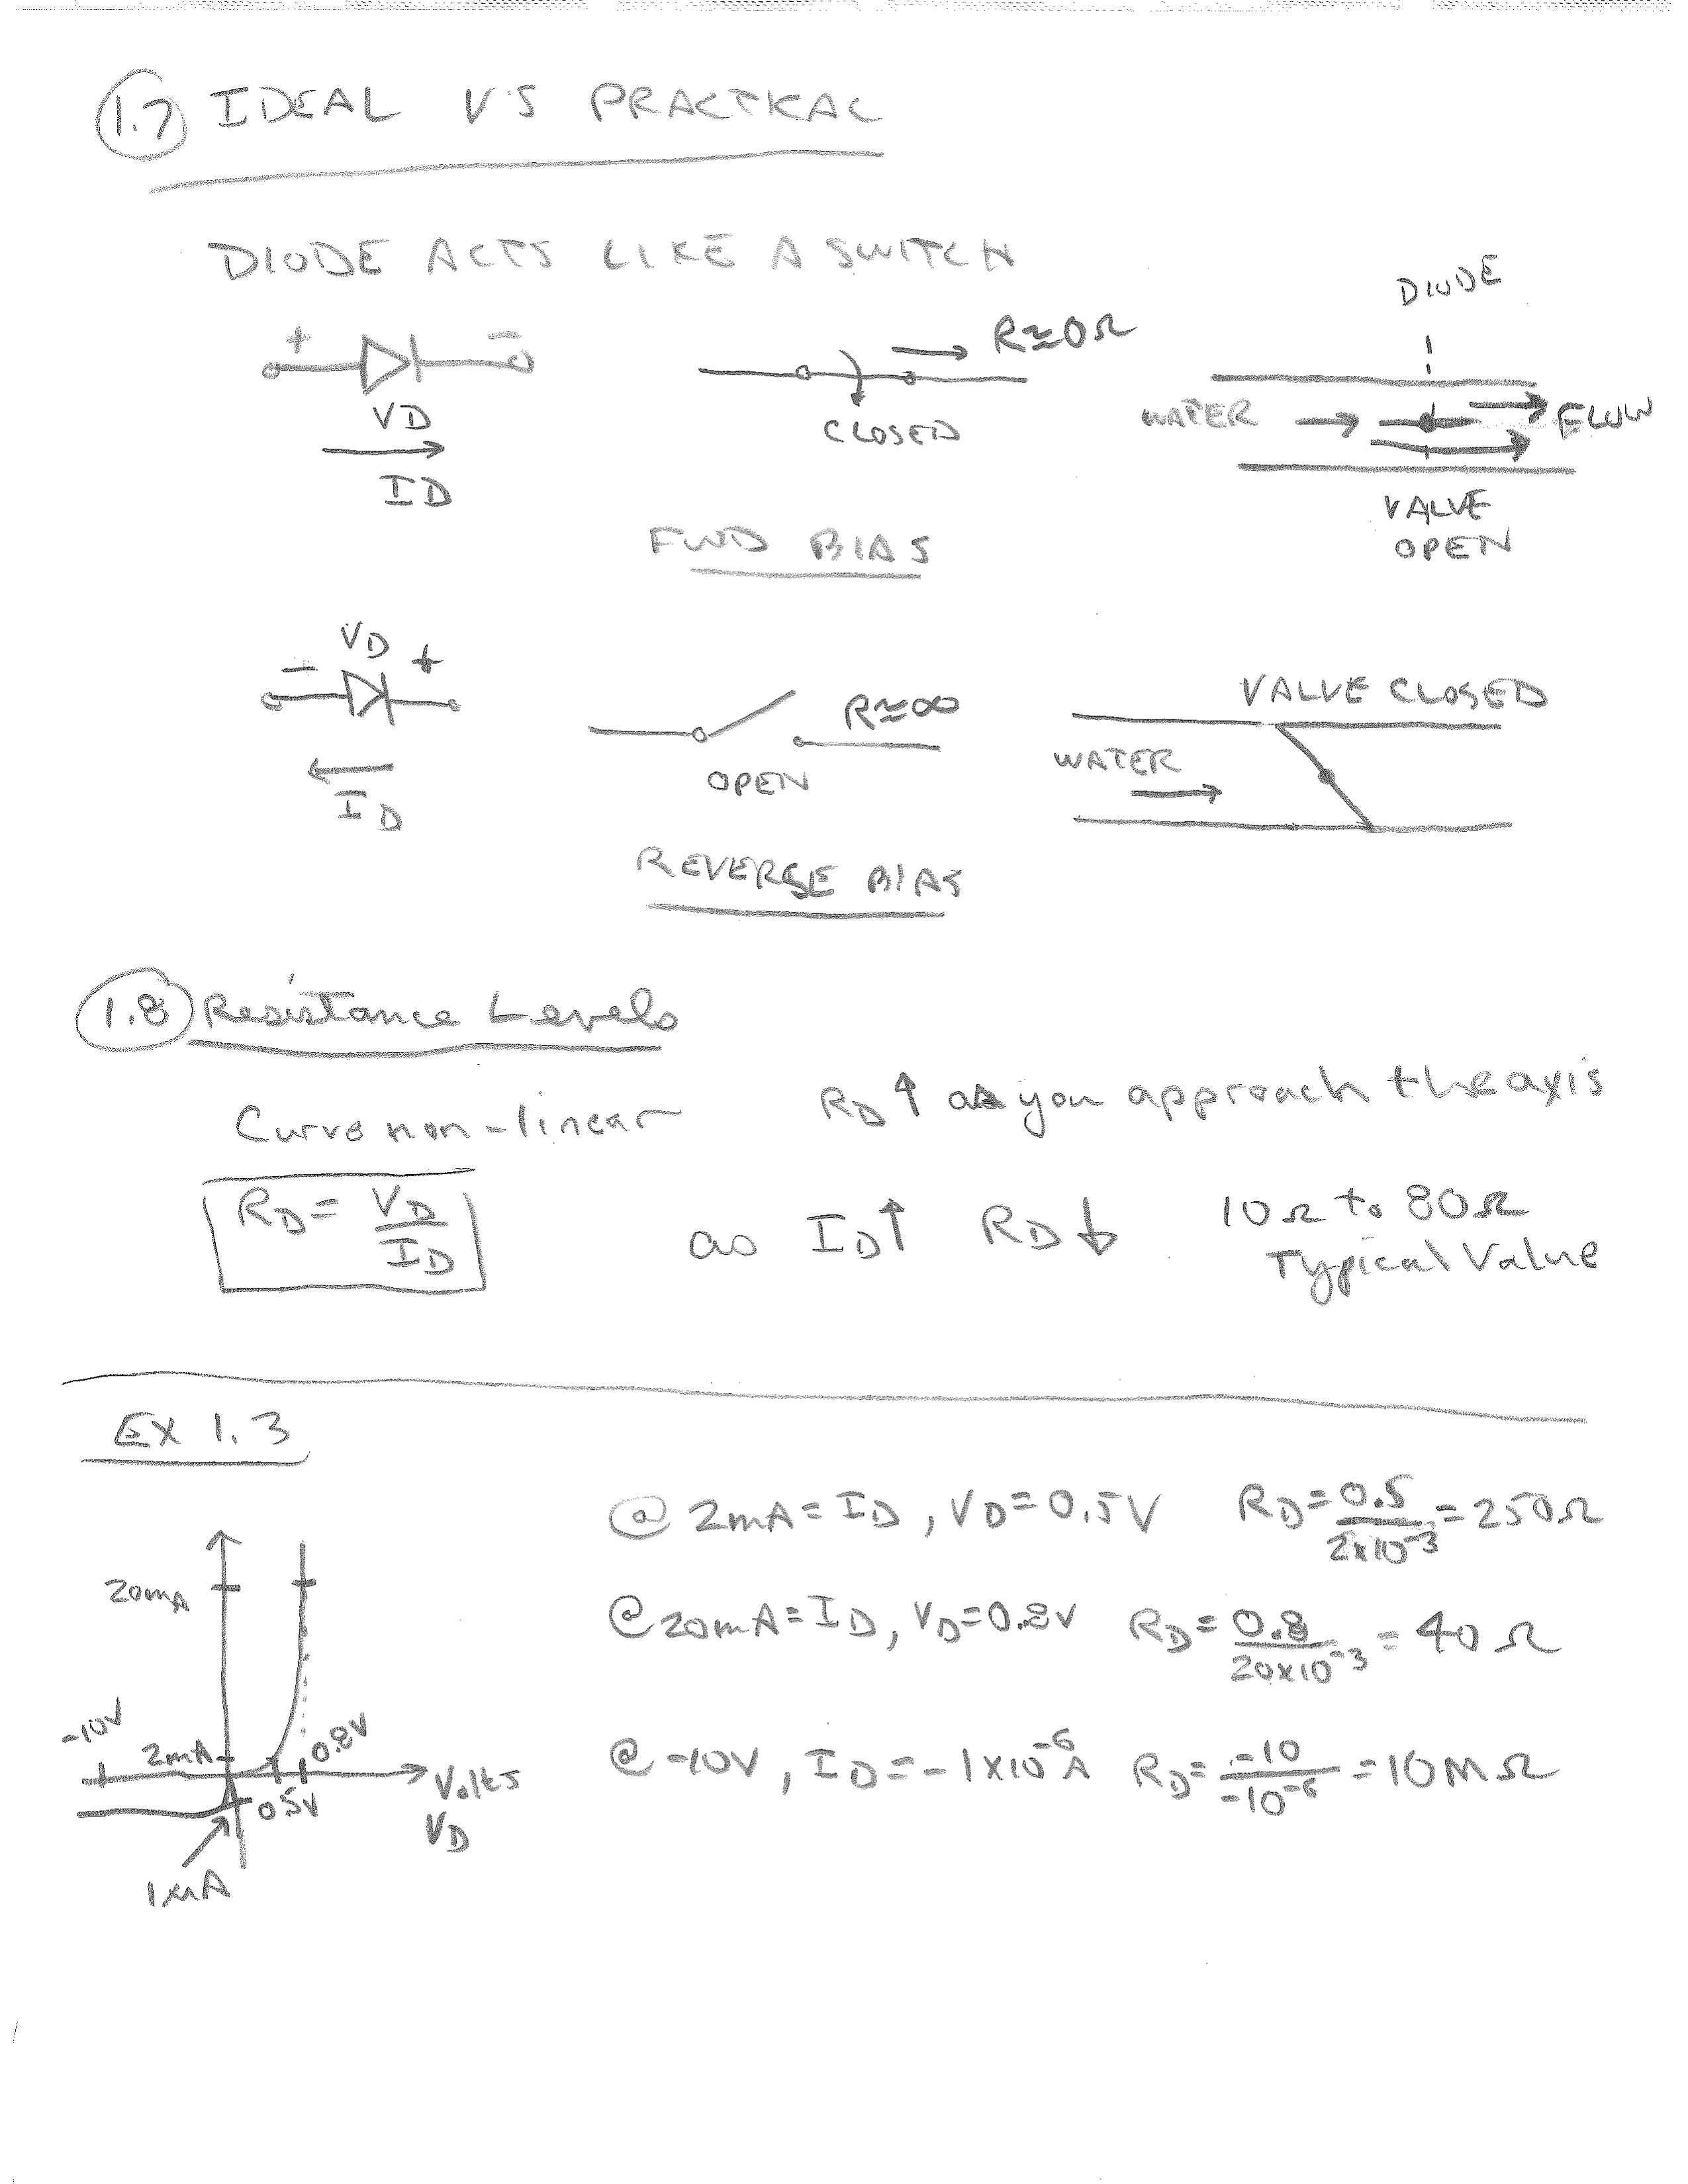 1.7 IDEAL VS PRACTICAL
DIODE ACTS LIKE A SWITCH
+ -
VD
ID
R≅0Ω
CLOSED
DIODE
WATER FLOW
VALVE
OPEN
FWD BIAS
VD
- +
ID
R≅∞
OPEN
VALVE CLOSED
WATER
REVERSE BIAS
1.8 Resistance Levels
Curve non-linear RD↑ as you approach the axis
RD = VD/ID as ID↑ RD↓ 10Ω to 80Ω
Typical Value
EX 1.3
@ 2mA = ID, VD = 0.5V RD = 0.5/2x10^-3 = 250Ω
@ 20mA = ID, VD = 0.8V RD = 0.8/20x10^-3 = 40Ω
@ -10V, ID = -1x10^-6 A RD = -10/-10^-6 = 10MΩ
20mA
-10V
2mA
0.8V
0.5V
Volts
VD
1μA